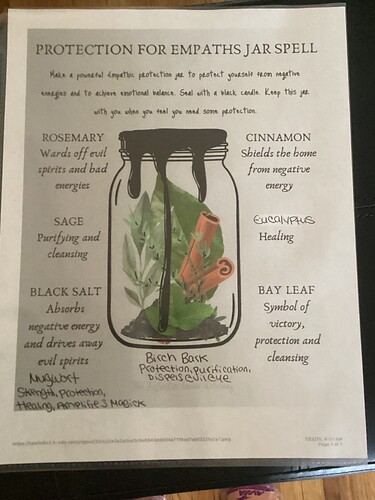 PROTECTION FOR EMPATHS JAR SPELL
Make a powerful Empathic protection jar to protect yourself from negative
energies and to achieve emotional balance. Seal with a black candle. Keep this jar
with you when you feel you need some protection.
ROSEMARY
Wards off evil
spirits and bad
energies
SAGE
Purifying and
cleansing
BLACK SALT
Absorbs
negative energy
and drives away
evil spirits
Mugwort
Strength, Protection,
Healing, Amplifies Magick
Birch Bask
Protection, purification,
Dispels evil eye
CINNAMON
Shields the home
from negative
energy
Eucalyptus
Healing
BAY LEAF
Symbol of
victory,
protection and
cleansing
Page 1 of 1